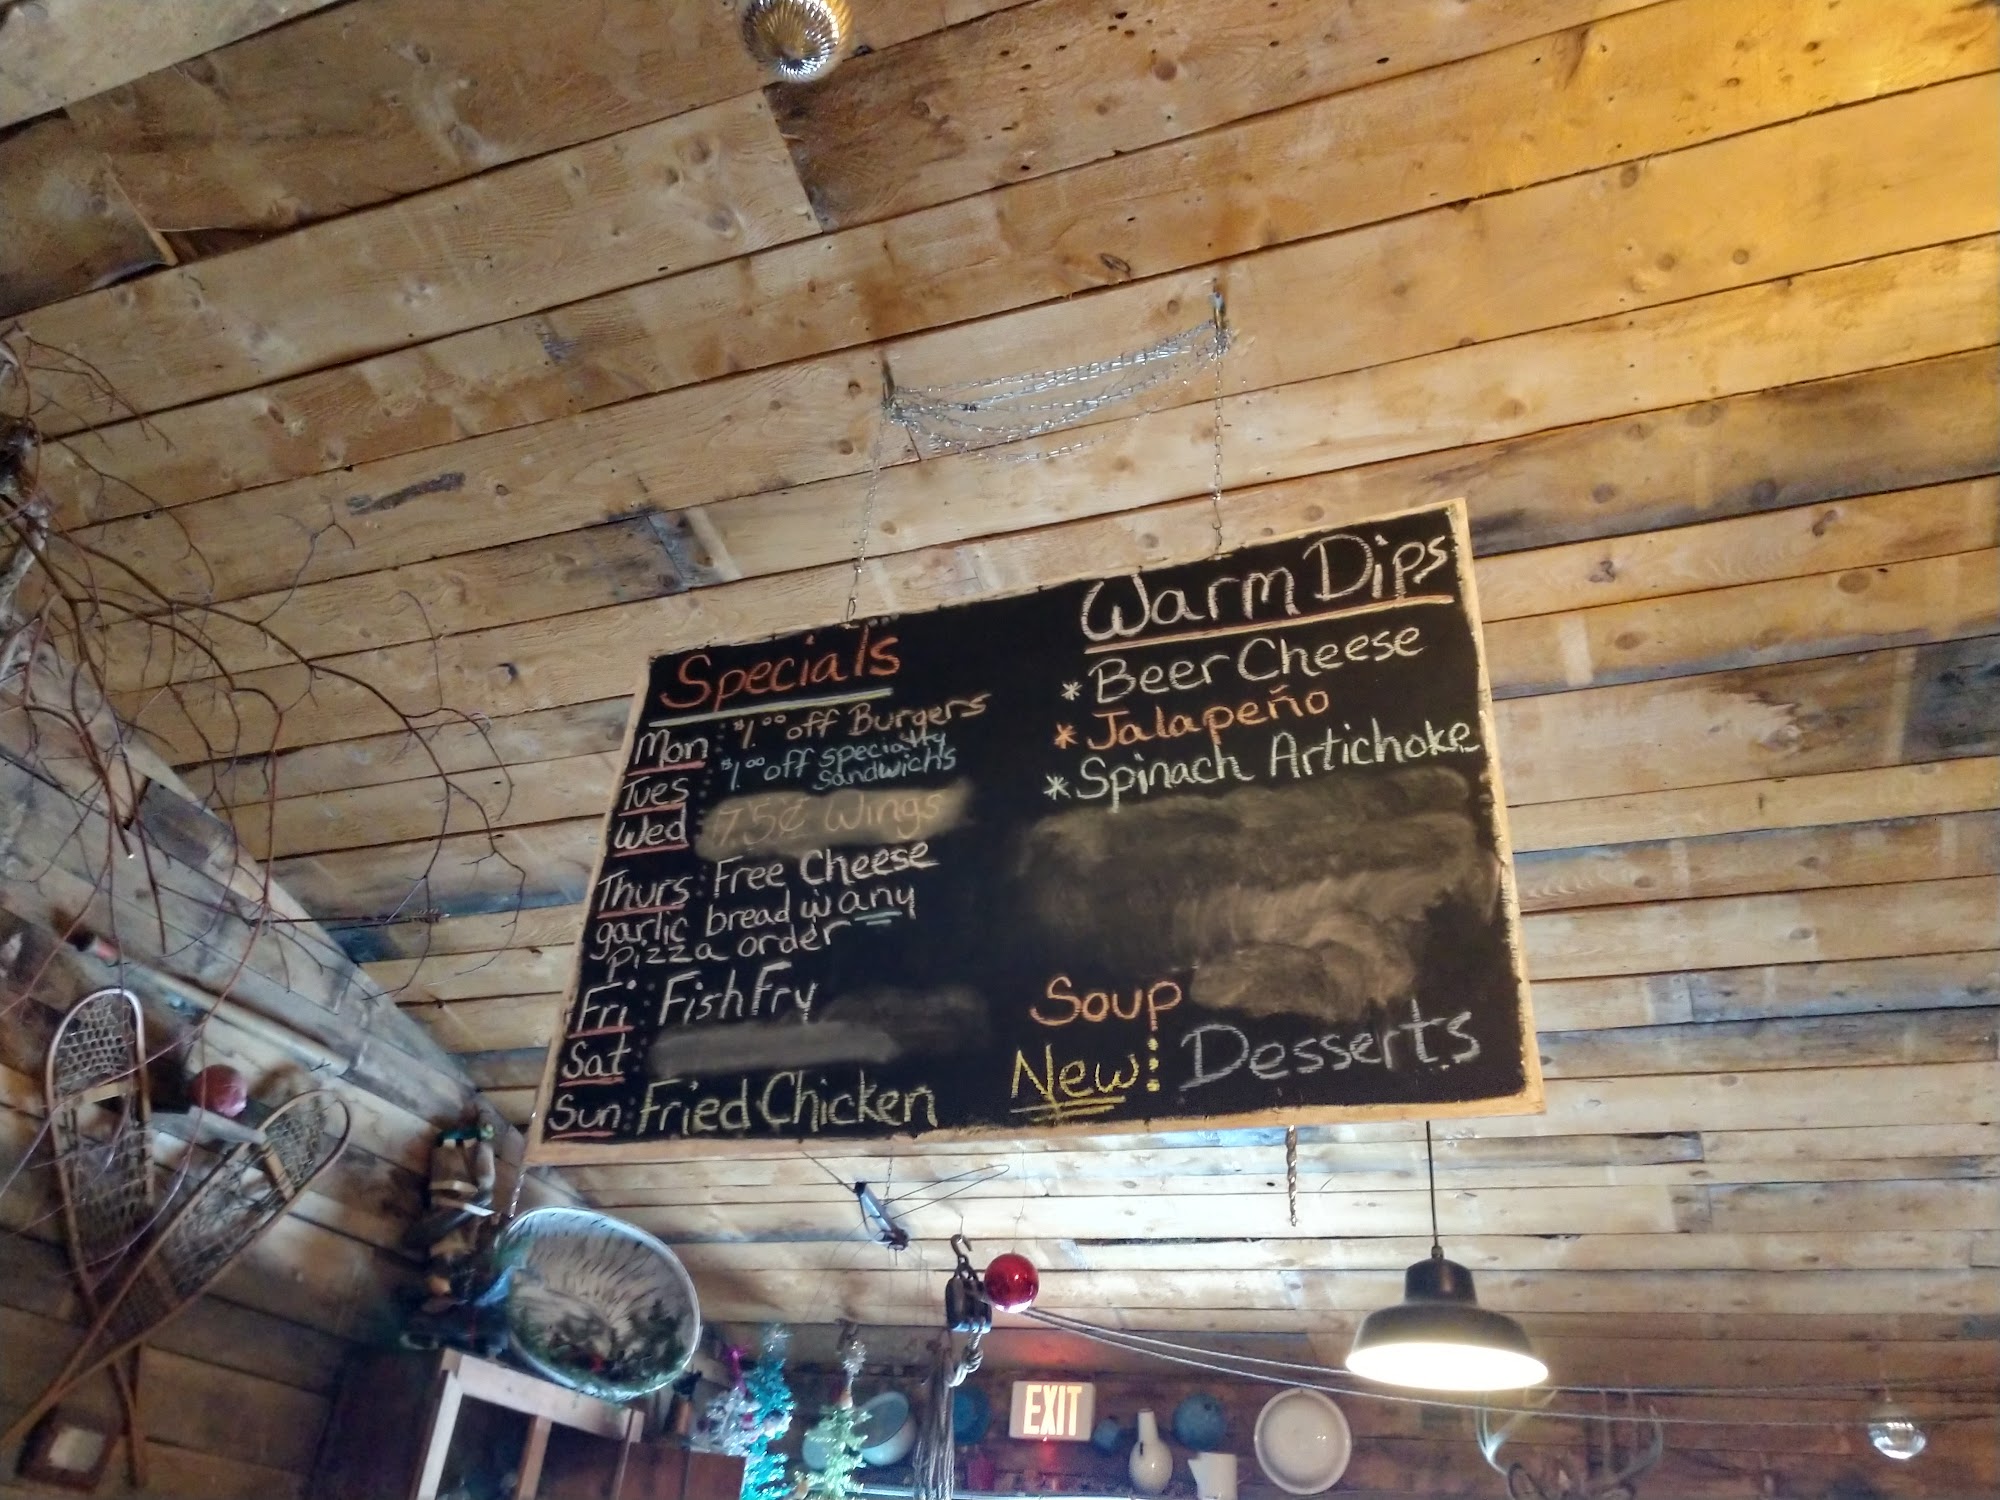 Specials
Mon : $1.00 off Burgers
Tues : $1.00 off specialty
Sandwichs
Wed : 75¢ Wings
Thurs : Free Cheese
garlic bread w any
pizza order
Fri : Fish Fry
Sat :
Sun : Fried Chicken
Warm Dips
* Beer Cheese
* Jalapeño
* Spinach Artichoke
Soup
New : Desserts
EXIT